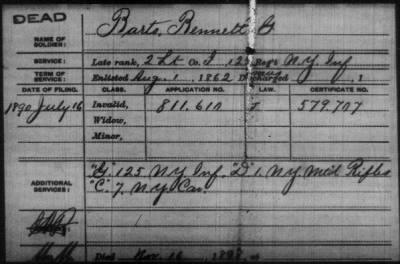 DEAD
NAME OF SOLDIER: Barto, Bennett
SERVICE: Late rank, 2 Lt Co. I, 125 Reg't N.Y. Inf
TERM OF SERVICE: Enlisted Aug. 1, 1862 Discharged , 1
DATE OF FILING. CLASS. APPLICATION NO. LAW. CERTIFICATE NO.
1890 July 16 Invalid, 811.610 579.707
Widow,
Minor,
ADDITIONAL SERVICES: "G," 125 N.Y. Inf. "D" 1, N.Y. Mtd Rifles
"C," 7, N.Y. Cav.
Died Nov. 16, at